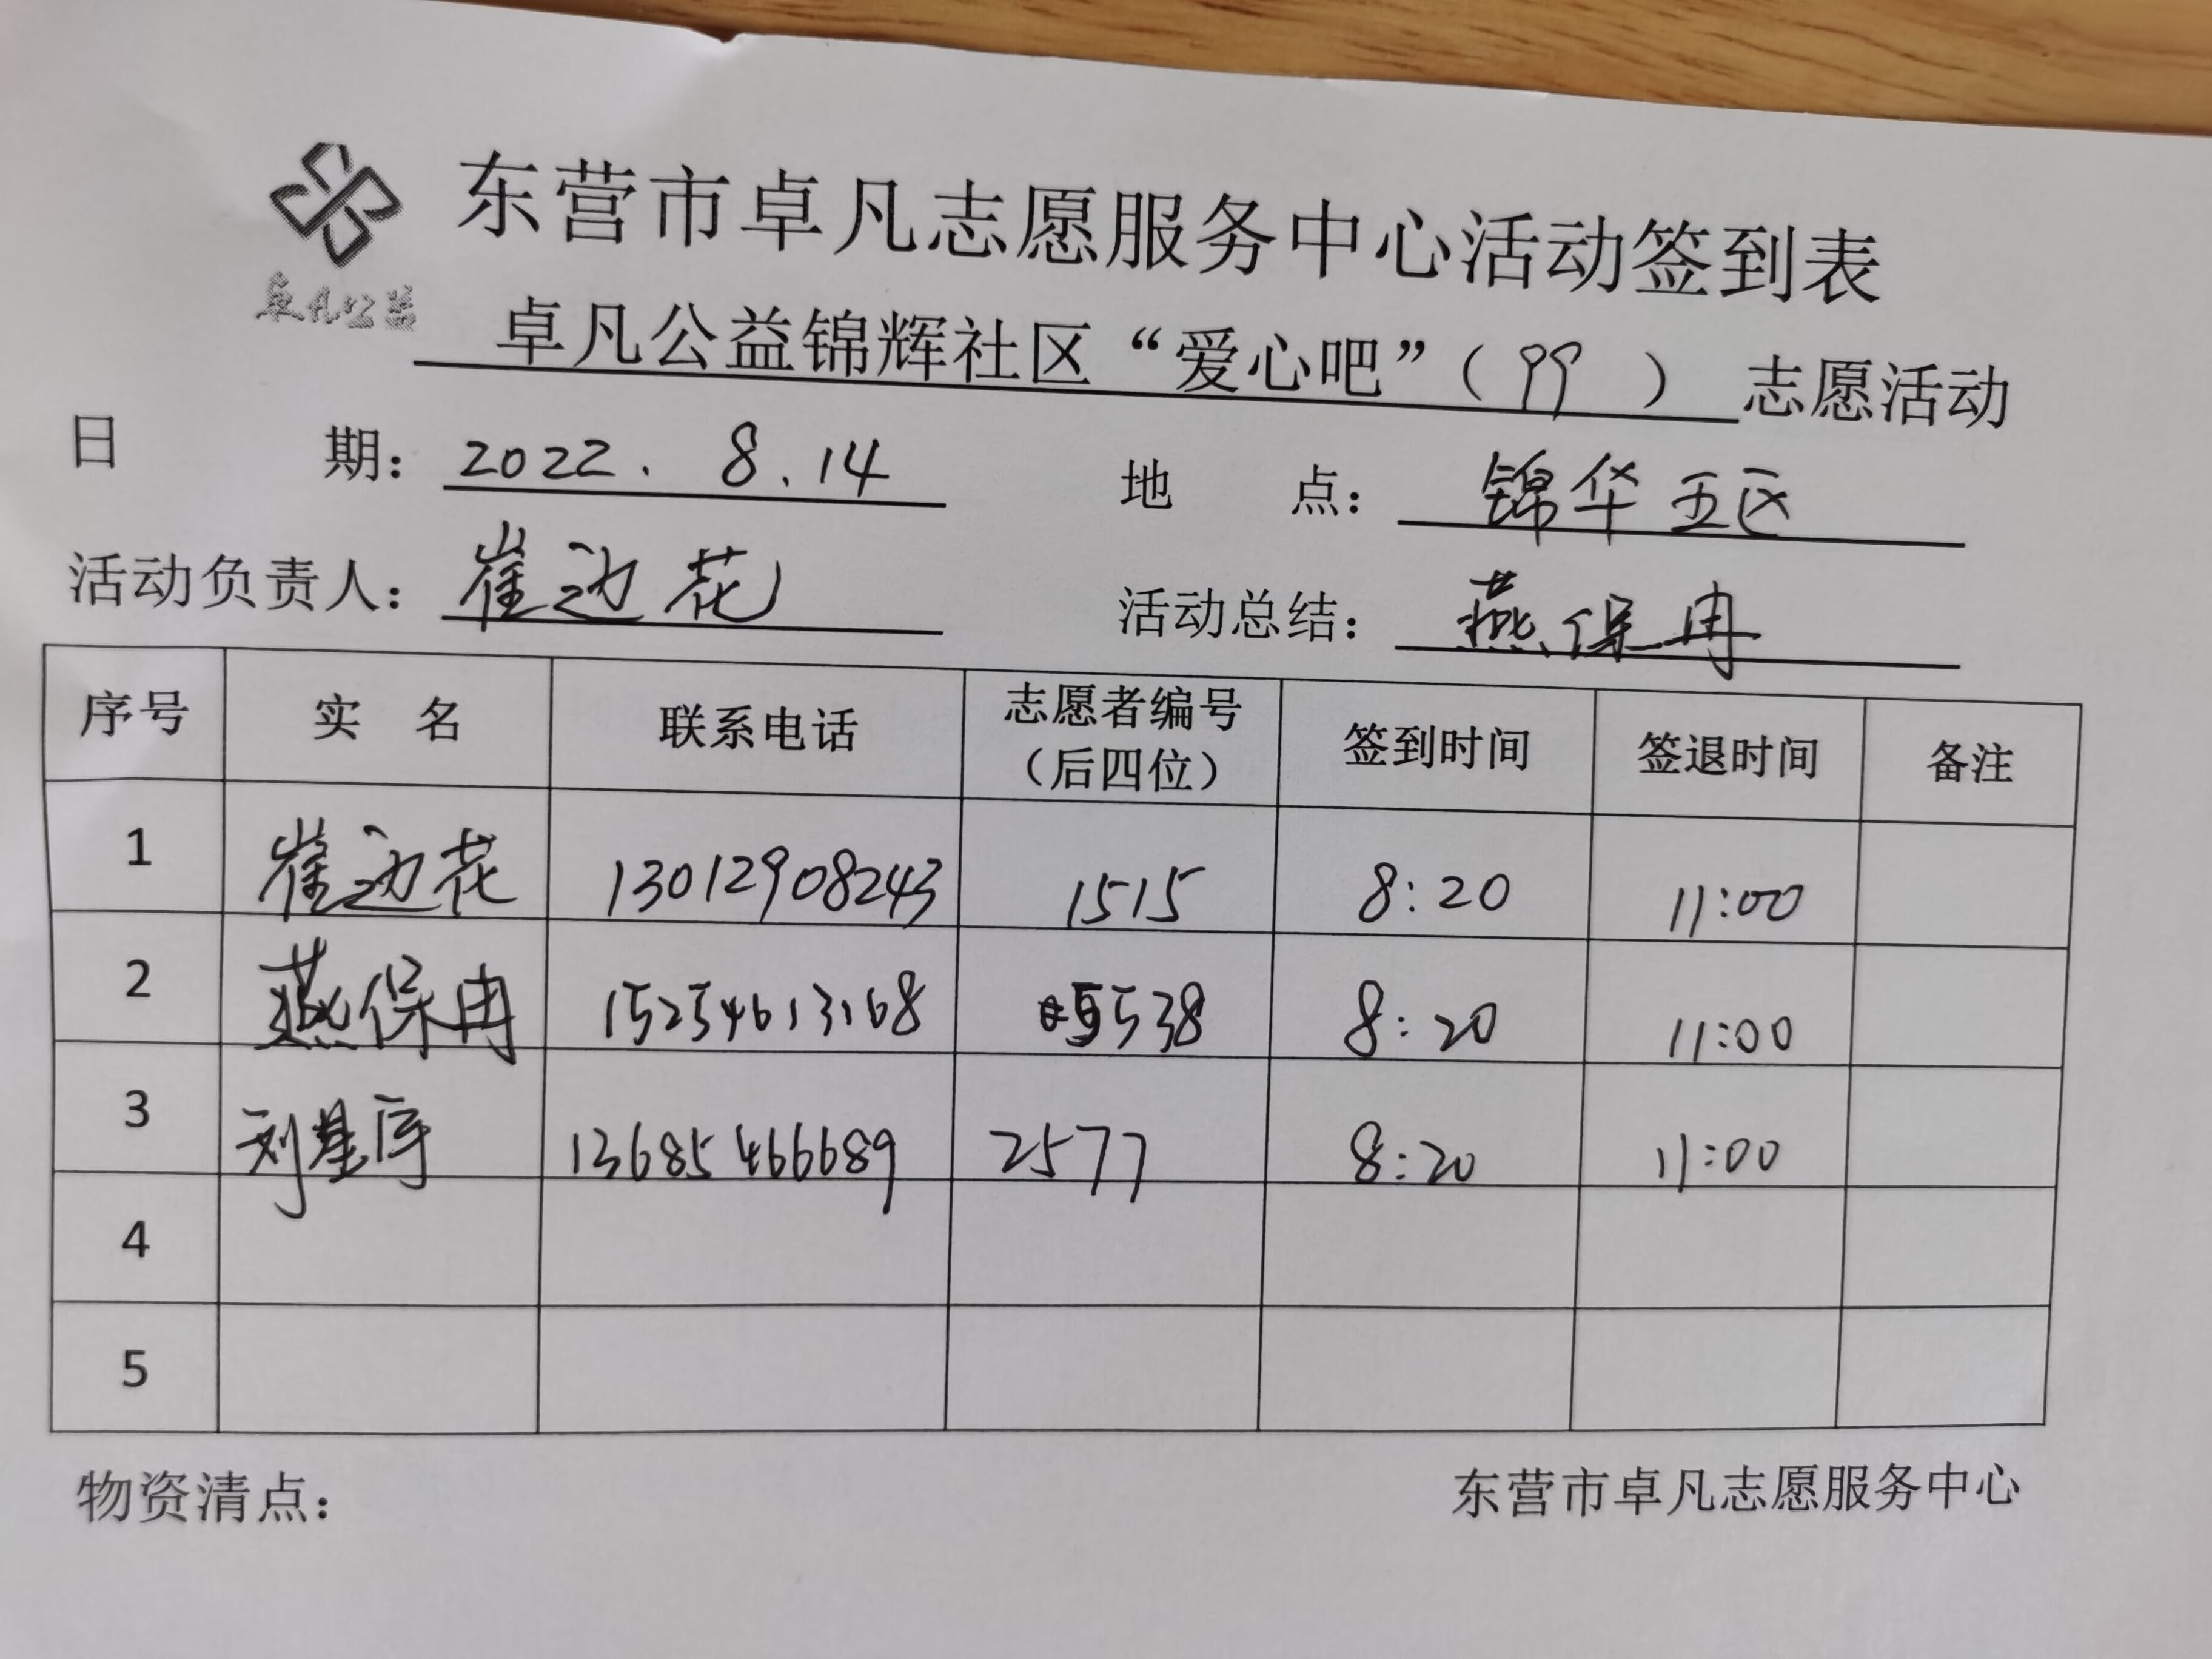 东营市卓凡志愿服务中心活动签到表
卓凡公益
卓凡公益锦辉社区“爱心吧”（99）志愿活动
日期：2022.8.14 地点：锦华五区
活动负责人：崔边花 活动总结：燕保冉
序号 实名 联系电话 志愿者编号（后四位） 签到时间 签退时间 备注
1 崔边花 13012908243 1515 8:20 11:00
2 燕保冉 15254613168 538 8:20 11:00
3 刘星宇 13685466689 2577 8:20 11:00
4
5
物资清点： 东营市卓凡志愿服务中心